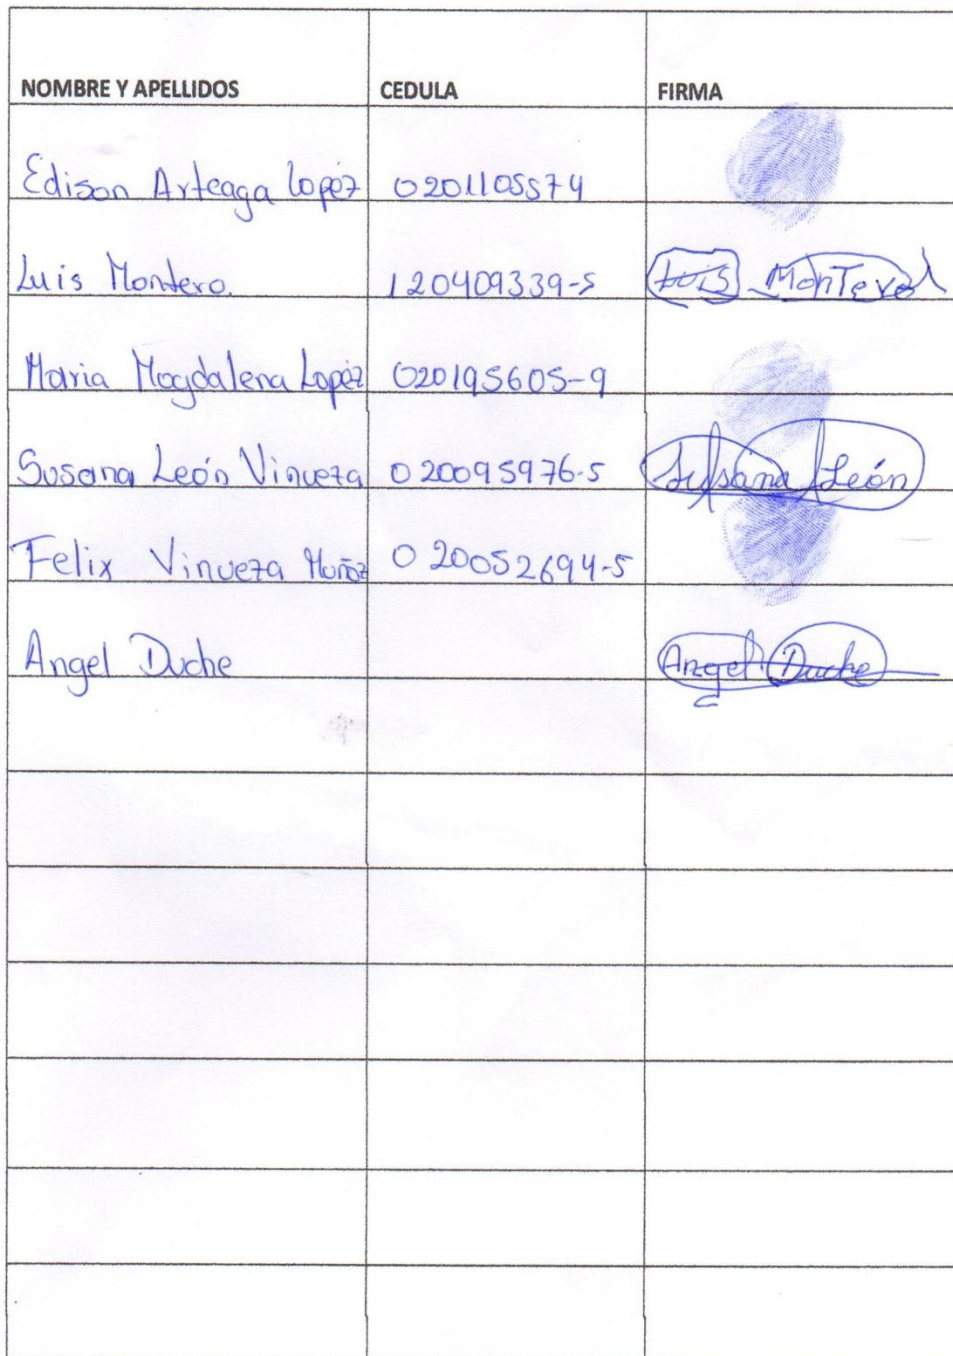 NOMBRE Y APELLIDOS CEDULA FIRMA
Edison Arteaga Lopez 0201105574
Luis Montero. 120409339-5 Luis Montero
Maria Magdalena Lopez 020195605-9
Susana León Vinueza 020095976-5 Susana León
Felix Vinueza Muñoz 020052694-5
Angel Duche Angel Duche